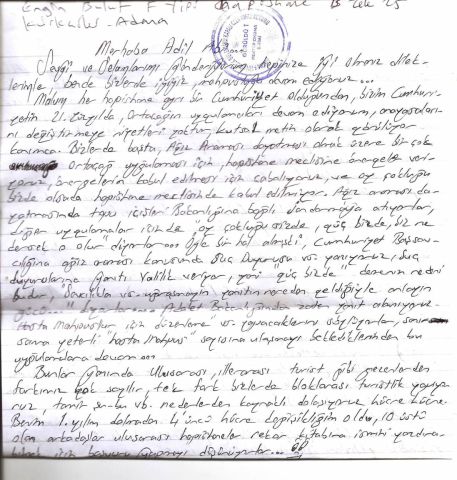 Engin Bulut F Tipi Hapishane B Tek 25
Kürkçüler - Adana
Merhaba Adil Abi...
Sevgi ve Selamlarımı gönderiyorum hepinize iyi olmanız dilek-
lerimle, bende bizlerde iyiyiz, mahpusluğa devam ediyoruz...
Malum her hapishane ayrı bir Cumhuriyet olduğundan, bizim Cumhuri-
yetin 21. Yüzyılda, Ortaçağın uygulamaları devam ediyorum, anayasaları-
nı değiştirmeye niyetleri yoktur, kutsal metin olarak görülüyor
kanımca. Bizlerde başta, Ağız Araması dayatması olmak üzere bir çok
Ortaçağ uygulaması için hapishane meclisine önergeler veri-
yoruz, önergelerin kabul edilmesi için çabalıyoruz, ve oy çokluğu
bizde olsada hapishane meclisinde kabul edilmiyor. Ağız araması da-
yatmasında topu içişleri Bakanlığına bağlı Jandarmaya atıyorlar,
diğer uygulamalar içinde "oy çokluğu sizde, güç bizde, biz ne
dersek o olur" diyorlar... Öyle bir hal almış ki, Cumhuriyet Başsav-
cılığına ağız araması konusunda Suç Duyurusu vs. yapıyoruz, Suç
duyurularına yanıtı Valilik veriyor, yani "güç bizde" demenin nedeni
budur, "Savcılıkla vs. uğraşmayın yanıtın nereden geldiğiyle anlayın
gücü..." diyorlar... Adalet Bakanlığından zaten yanıt alamıyoruz.
Hasta Mahpuslar için düzenleme vs. yapacaklarını söylüyorlar, sanır-
sam yeterli "hasta Mahpus" sayısına ulaşmayı beklediklerinden bu
uygulamalara devam...
Bunlar yanında uluslararası, illerarası turist gibi gezenlerden
farkımız yok sayılır, tek fark bizlerde bloklarası turistlik yapıyo-
ruz, tamir şu-bu vb. nedenlerden kaynaklı dolaşıyoruz hücre hücre.
Benim 1. yılım dolmadan 4'üncü hücre değişikliğim oldu, 10 üstü
olan arkadaşlar uluslararası hapishaneler rekor kitabına ismini yazdıra-
bilmek için başvuru yapmayı düşünüyorlar...